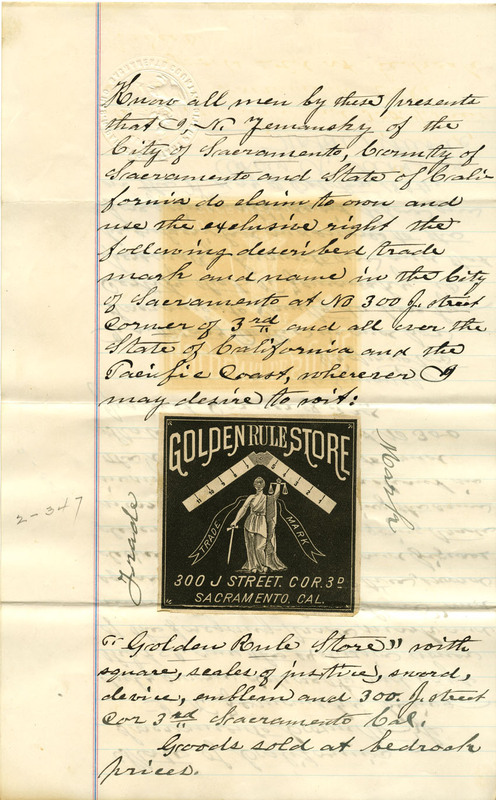 Know all men by these presents
that I N. Yemansky of the
City of Sacramento, County of
Sacramento and State of Cali-
fornia do claim to own and
use the exclusive right the
following described trade
mark and name in the City
of Sacramento at No 300 J. street
corner of 3rd and all over the
State of California and the
Pacific Coast, wherever I
may desire to wit:
GOLDEN RULE STORE
TRADE MARK
300 J STREET. COR. 3D
SACRAMENTO, CAL.
Trade
Mark
2-347
"Golden Rule Store" with
square, scales of justice, sword,
device, emblem and 300. J. street
cor 3rd Sacramento Cal.
Goods sold at bedrock
prices.